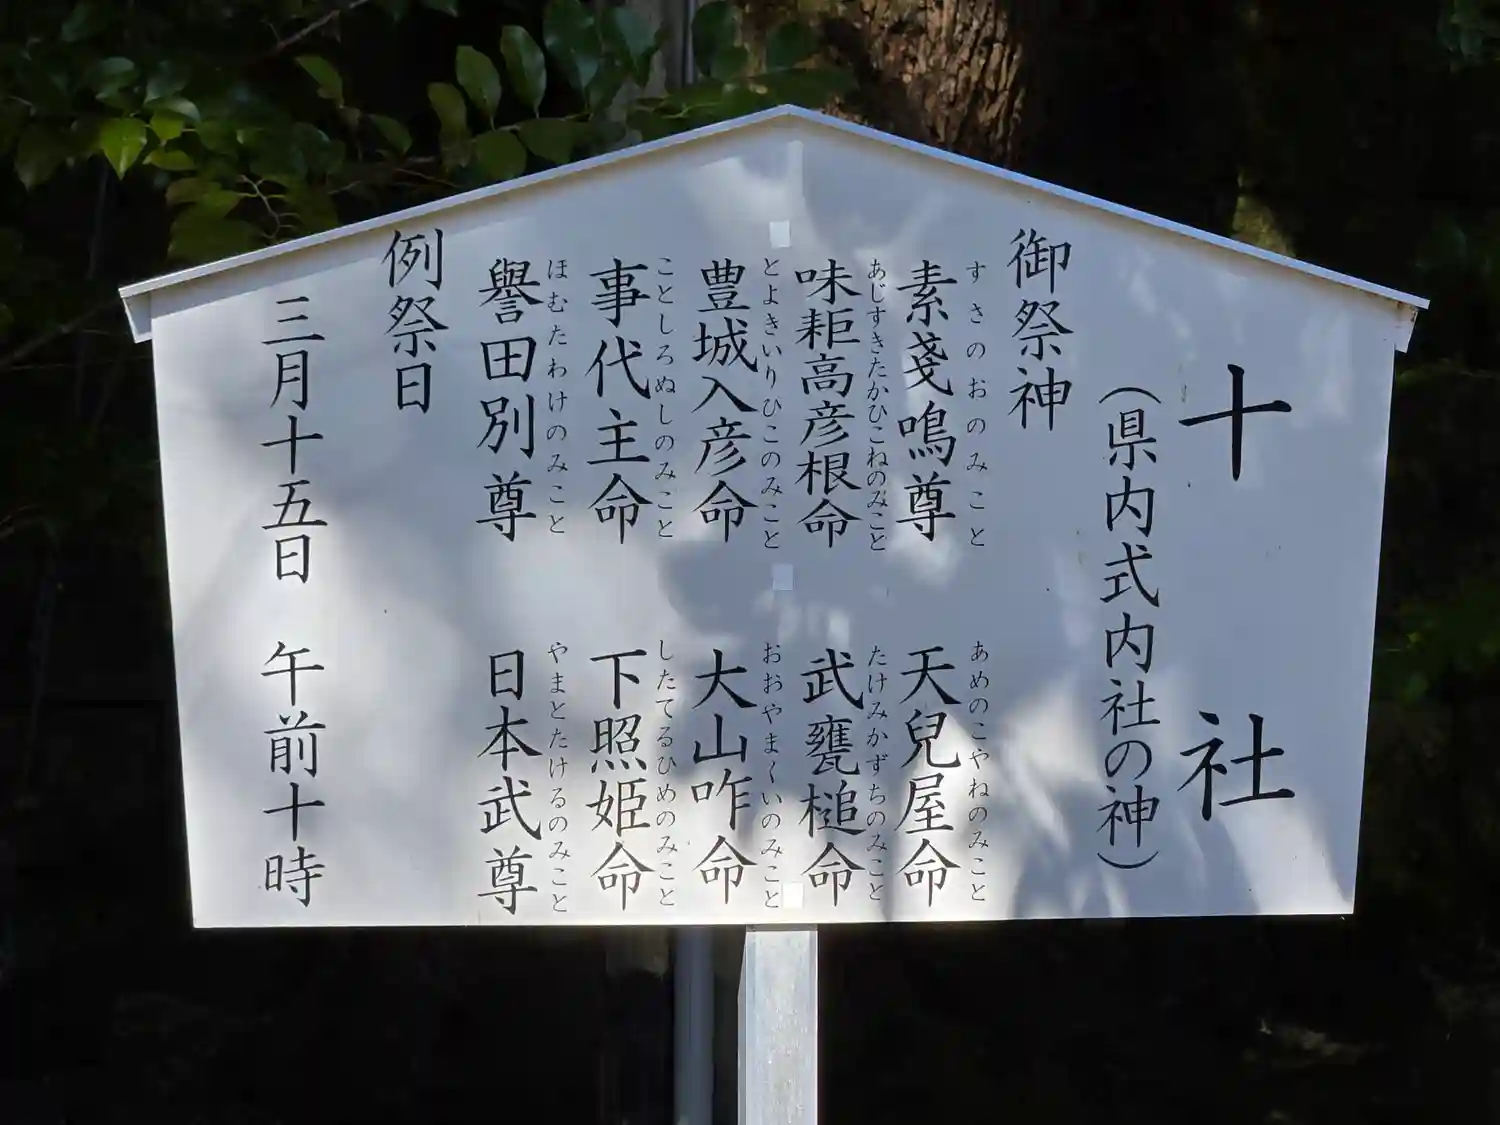 十社
（県内式内社の神）
御祭神
すさのおのみこと
素戔鳴尊
あめのこやねのみこと
天兒屋命
あじすきたかひこねのみこと
味耟高彦根命
たけみかずちのみこと
武甕槌命
とよきいりひこのみこと
豊城入彦命
おおやまくいのみこと
大山咋命
ことしろぬしのみこと
事代主命
したてるひめのみこと
下照姫命
ほむたわけのみこと
譽田別尊
やまとたけるのみこと
日本武尊
例祭日
三月十五日 午前十時